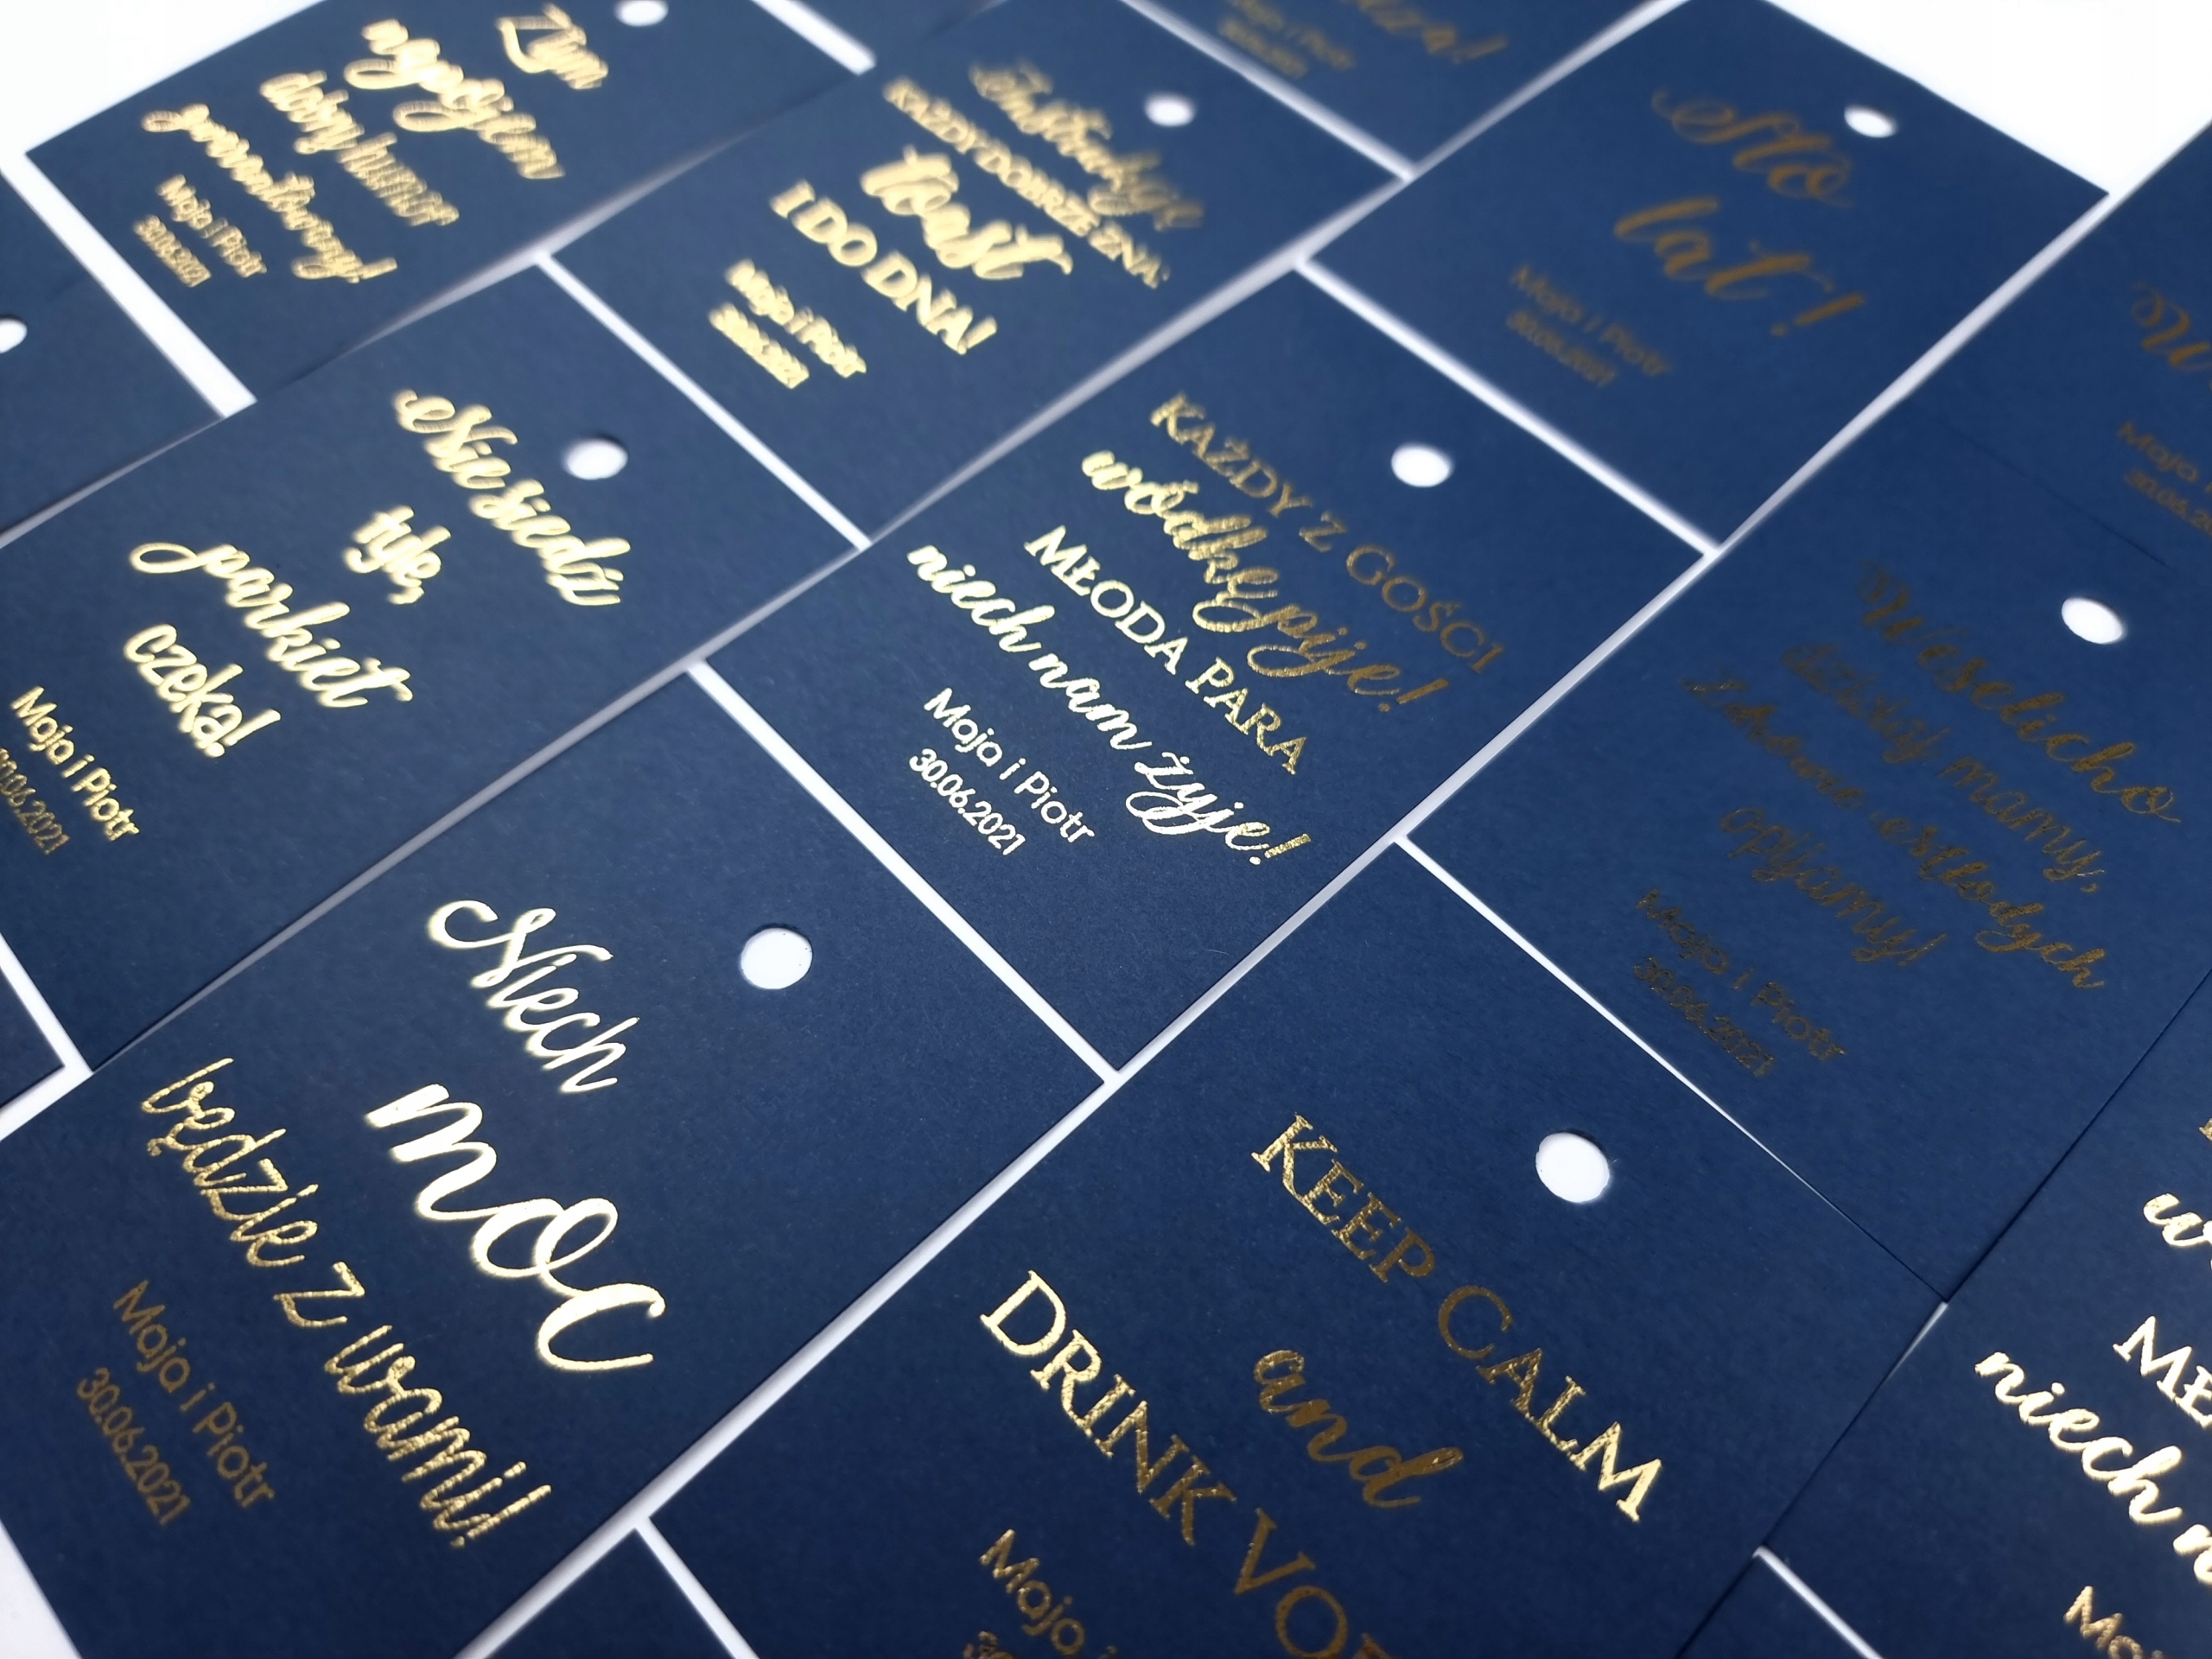 Tym
napojem
dobry humor
gwarantowany!
Maja i Piotr
30.06.2021
Instrukcję
KAŻDY DOBRZE ZNA:
toast
I DO DNA!
Maja i Piotr
30.06.2021
Sto
lat!
Maja i Piotr
30.06.2021
Nie siedź
tyle,
parkiet
czeka!
Maja i Piotr
30.06.2021
KAŻDY Z GOŚCI
wódkę pije!
MŁODA PARA
niech nam żyje!
Maja i Piotr
30.06.2021
Weselicho
dzisiaj mamy,
Zdrowie Młodych
opijamy!
Maja i Piotr
30.06.2021
Niech
moc
będzie z wami!
Maja i Piotr
30.06.2021
KEEP CALM
and
DRINK
Maja i
niech
Maja